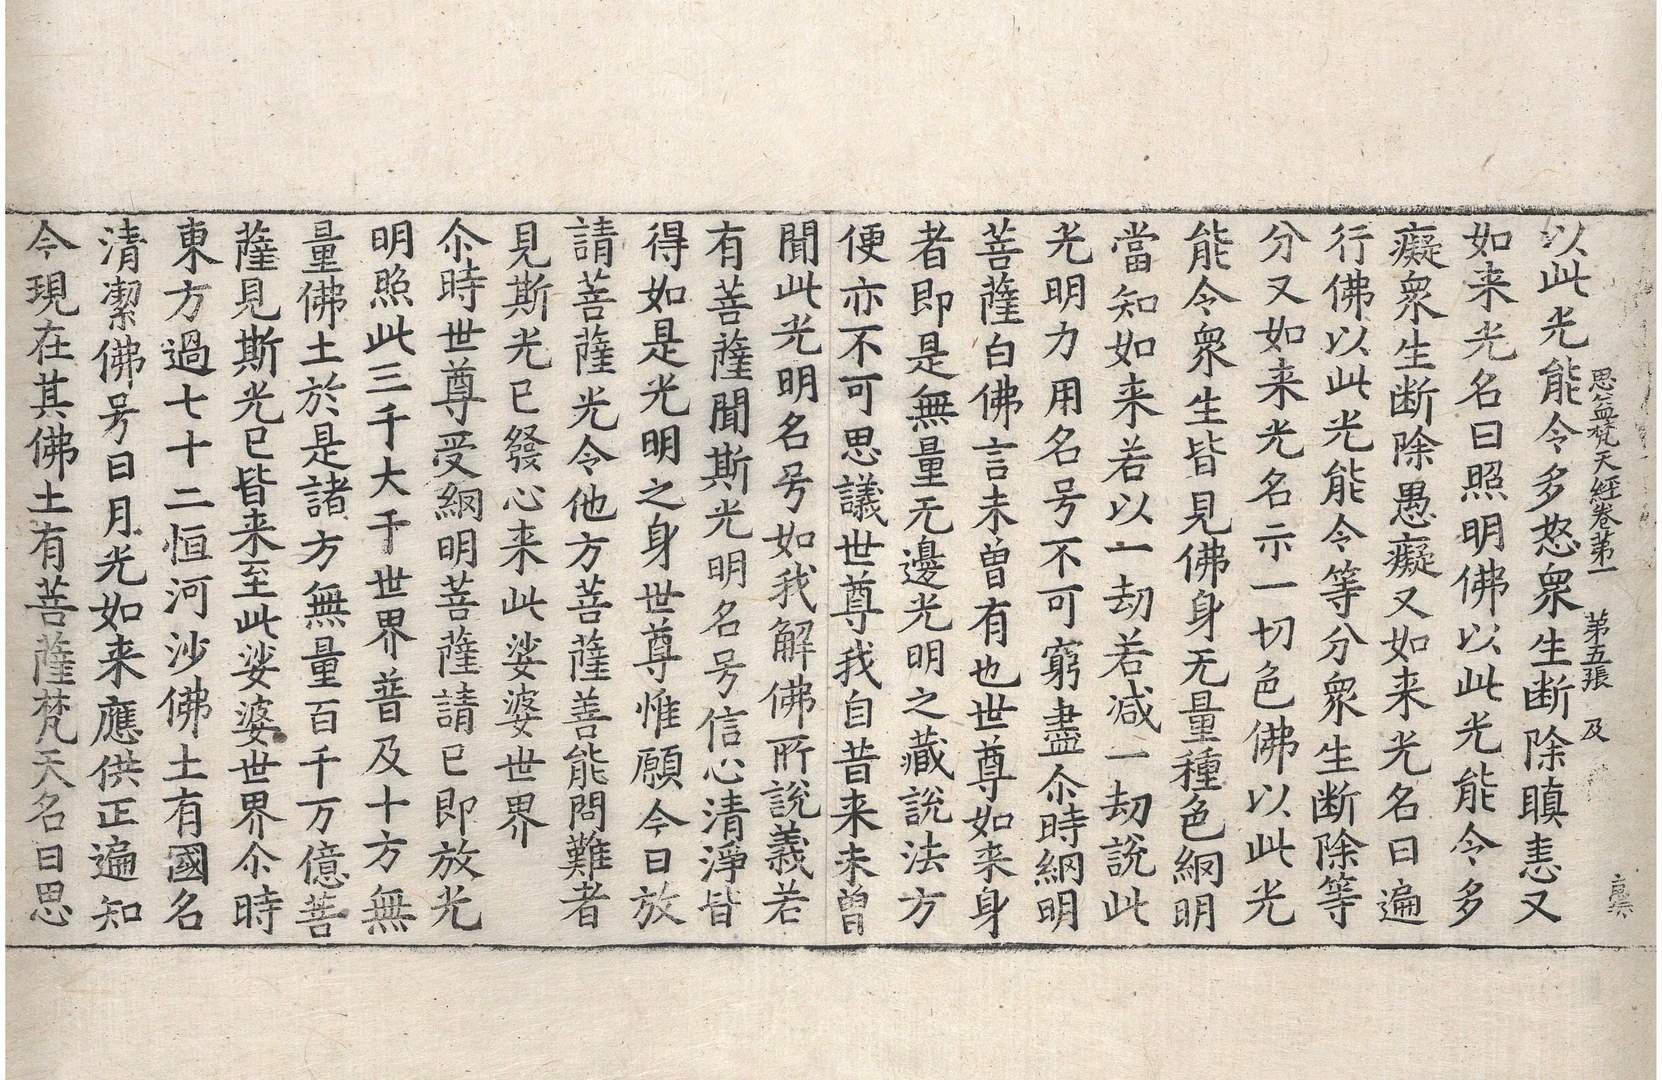 思益梵天經卷第一 第五張 及
以此光能令多怒衆生断除瞋恚又
如来光名曰照明佛以此光能令多
癡衆生断除愚癡又如来光名曰遍
行佛以此光能令等分衆生断除等
分又如来光名示一切色佛以此光
能令衆生皆見佛身无量種色網明
當知如来若以一劫若减一劫說此
光明力用名号不可窮盡尒時網明
菩薩白佛言未曽有也世尊如来身
者即是無量无邊光明之藏說法方
便亦不可思議世尊我自昔来未曽
聞此光明名号如我解佛所說義若
有菩薩聞斯光明名号信心清淨皆
得如是光明之身世尊惟願今日放
請菩薩光令他方菩薩善能問難者
見斯光已發心来此娑婆世界
尒時世尊受網明菩薩請已即放光
明照此三千大千世界普及十方無
量佛土於是諸方無量百千万億菩
薩見斯光已皆来至此娑婆世界尒時
東方過七十二恒河沙佛土有國名
清潔佛号日月光如来應供正遍知
今現在其佛土有菩薩梵天名曰思